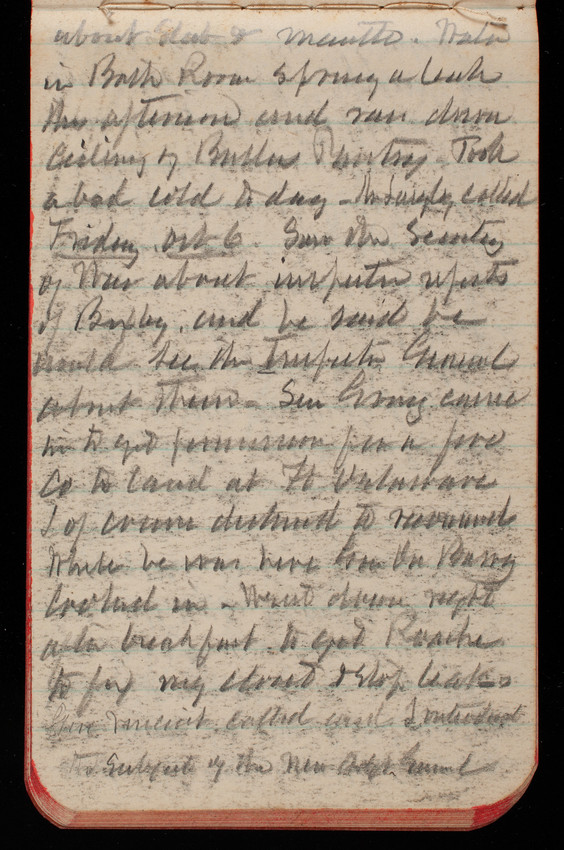 about Club & . Water
in Bath Room sprung a leak
this afternoon and ran down
ceiling of Butlers Pantry. Took
a bad cold to day - called
Friday Oct 6. Saw the Secretary
of War about inspector reports
of Bixby, and he said he
would see the Inspector General
about them - Gen Gray came
in to get permission for a
Co to land at Ft Delaware
I of course declined to recommend
While he was here Gen Du Barry
looked in - Went down right
after breakfast to get Roache
to fix my closet & stop leak -
Gen Vincent called and I introduced
the subject of the new Adjt General